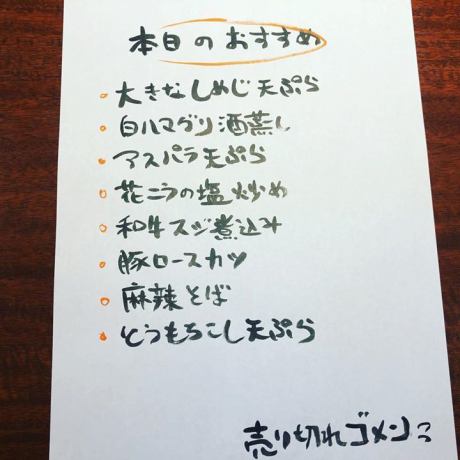 本日のおすすめ
大きなしめじ天ぷら
白ハマグリ酒蒸し
アスパラ天ぷら
花ニラの塩炒め
和牛スジ煮込み
豚ロースカツ
麻辣そば
とうもろこし天ぷら
売り切れゴメン